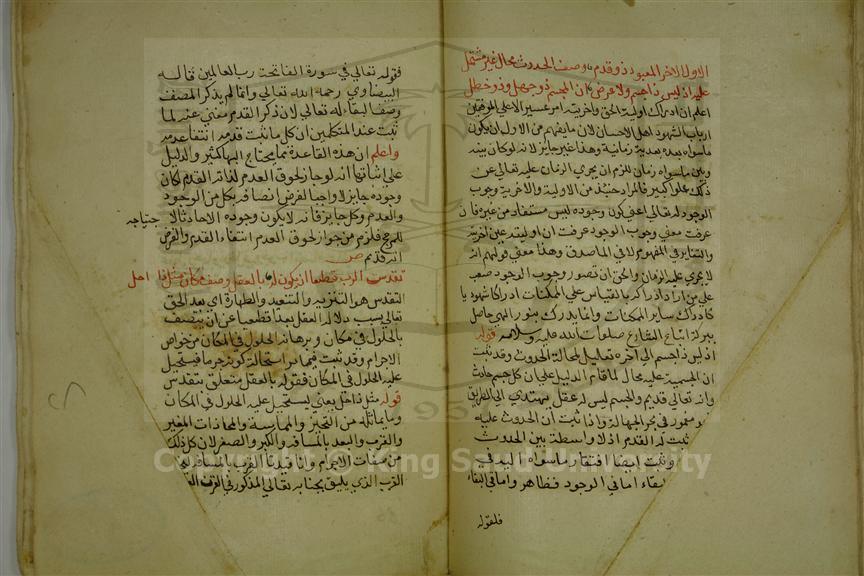 الاول الاخر المعبود ذو قدم وصف الحدوث محال غير مشتمل
عليه اذ ليس ذا جسم ولا عرض ان المجسم ذو جهل وذو خطل
اعلم ان ادراك اولية الحق واخريته امر عسير الا علي الموقنين
ارباب الشهود اهل الاحسان لان ما يفهم من الاول ان يكون
ما سواه بعده بعدية زمانية وهذا غير جايز لانه لو كان بينه
وبين ما سواه زمان للزم ان يجري الزمان عليه تعالي عن
ذلك علوا كبيرا فالمراد حينئذ من الاولية والاخرية وجوب
الوجود له تعالي اعني كون وجوده ليس مستفاد من غيره فان
عرفت معني وجوب الوجود عرفت ان اوليته عين اخريته
والتغاير في المفهوم لا في الماصدق وهذا معني قولهم انه
لا يجري عليه الزمان والحق ان تصور وجوب الوجود صعب
علي من اراد ادراكه بالقياس علي الممكنات ادراكا شهوديا
كادراك ساير الممكنات وانما يدرك بنور الهي حاصل
ببركة اتباع الشارع صلوات الله عليه وسلامه قوله
اذ ليس ذا جسم الي آخره تعليل لمحالة الحدوث وقد ثبت
ان الجسمية عليه محال لما قام الدليل علي ان كل جسم حادث
وانه تعالي قديم والمجسم ليس له عقل يهتدي الي الطريق
مغمور في بحر الجهالة واذا ثبت ان الحدوث عليه
ثبت له القدم اذ لا واسطة بين الحدوث
وثبت ايضا افتقار ما سواه اليه في
بقاء اما في الوجود فظاهر واما في البقاء
فلقوله
فقوله تعالي في سورة الفاتحة رب العالمين قاله
البيضاوي رحمه الله تعالي وانما لم يذكر المصنف
وصف البقاء له تعالي لان ذكر القدم مغني عنه لما
ثبت عند المتكلمين ان كل ما ثبت قدمه انتفا عدمه
واعلم ان هذه القاعدة مما يحتاج اليها كثير والدليل
علي اثباتها انه لو جاز لحوق العدم لذات القدم لكان
وجوده جايز لا واجبا لفرض اتصافه بكل من الوجود
والعدم وكل جايز فانه لا يكون وجوده الا حادثا لاحتياجه
للمرجح فلزم من جواز لحوق العدم انتفاء القدم والفرض
انه قديم ص
تقدس الرب قطعا ان يكون له بالعقل وصف مكان مثل ذا احل
التقدس هو التنزيه والتبعيد والطهارة اي بعد الحق
تعالي بسبب دلالة العقل بعدا قطعيا عن ان يتصف
بالحلول في مكان وبرهانه الحلول في المكان من خواص
الاجرام وقد ثبت فيما مر استحالة كونه جرما فيستحيل
عليه الحلول في المكان فقوله بالعقل متعلق بتقدس
قوله مثل ذا احل يعني يستحيل عليه الحلول في المكان
وما يماثله من التحيز والمماسة والمحاذات المغير
والقرب والبعد بالمسافة والكبر والصغر لان كل ذلك
من صفات الاجرام وانما قيدنا القرب بالمسافة
القرب الذي يليق بجنابه تعالي المذكور في
Copyright © King Saud University
1957